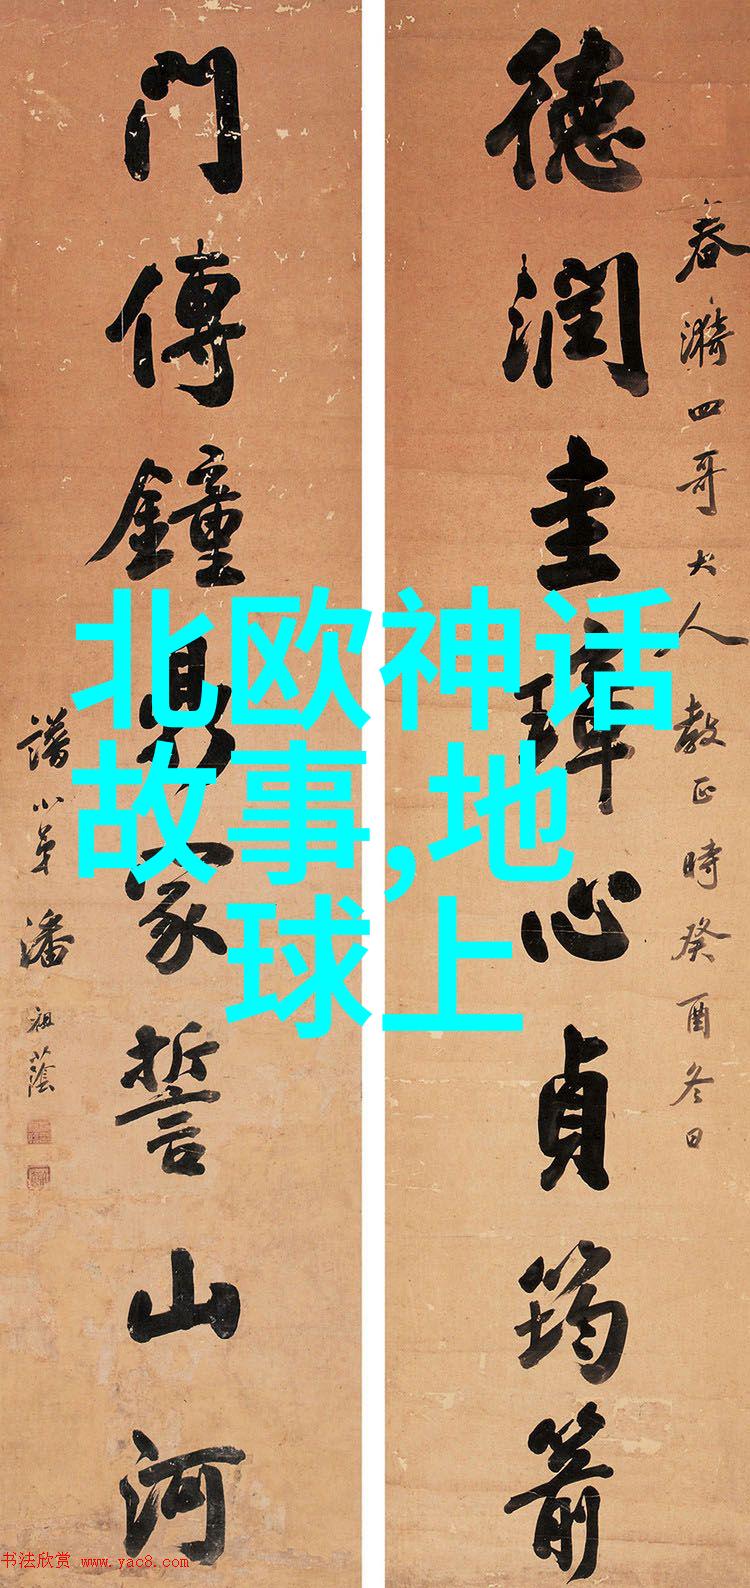 德潤圭璋心貞筠箭
春漪四哥大人教正時癸酉冬日
門傳鐘鼎家誓山河
譜小弟潘祖蔭
北欧神话
故事,地
球上
书法欣赏 www.yac8.com